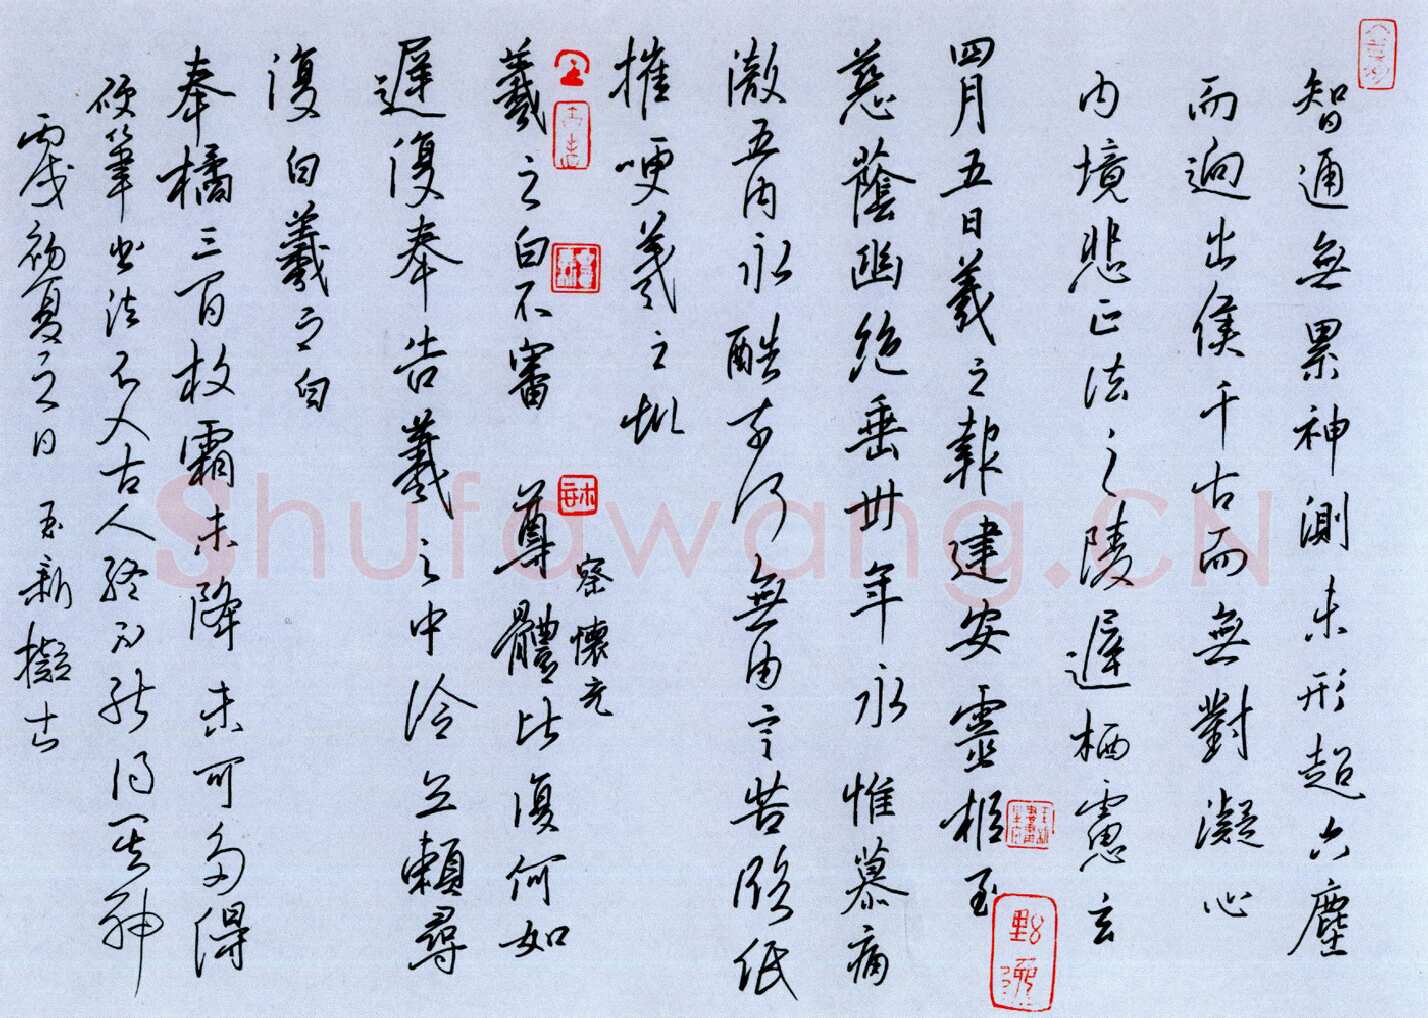 智通無累神測未形超六塵
而迥出侯千古而無對凝心
内境悲正法之陵遲栖慮玄
四月五日羲之報建安靈柩至
慈蔭幽絶垂卅年永惟慕痛
徹五内永酷奈何無由言苦臨紙
摧哽羲之
羲之白不審尊體比復何如
察懷充
遲復奉告羲之中冷無賴尋
復白羲之白
奉橘三百枚霜未降未可多得
硬筆書法不入古人終不能得其神
丙戌初夏之日 新擬古
Shufawang.CN